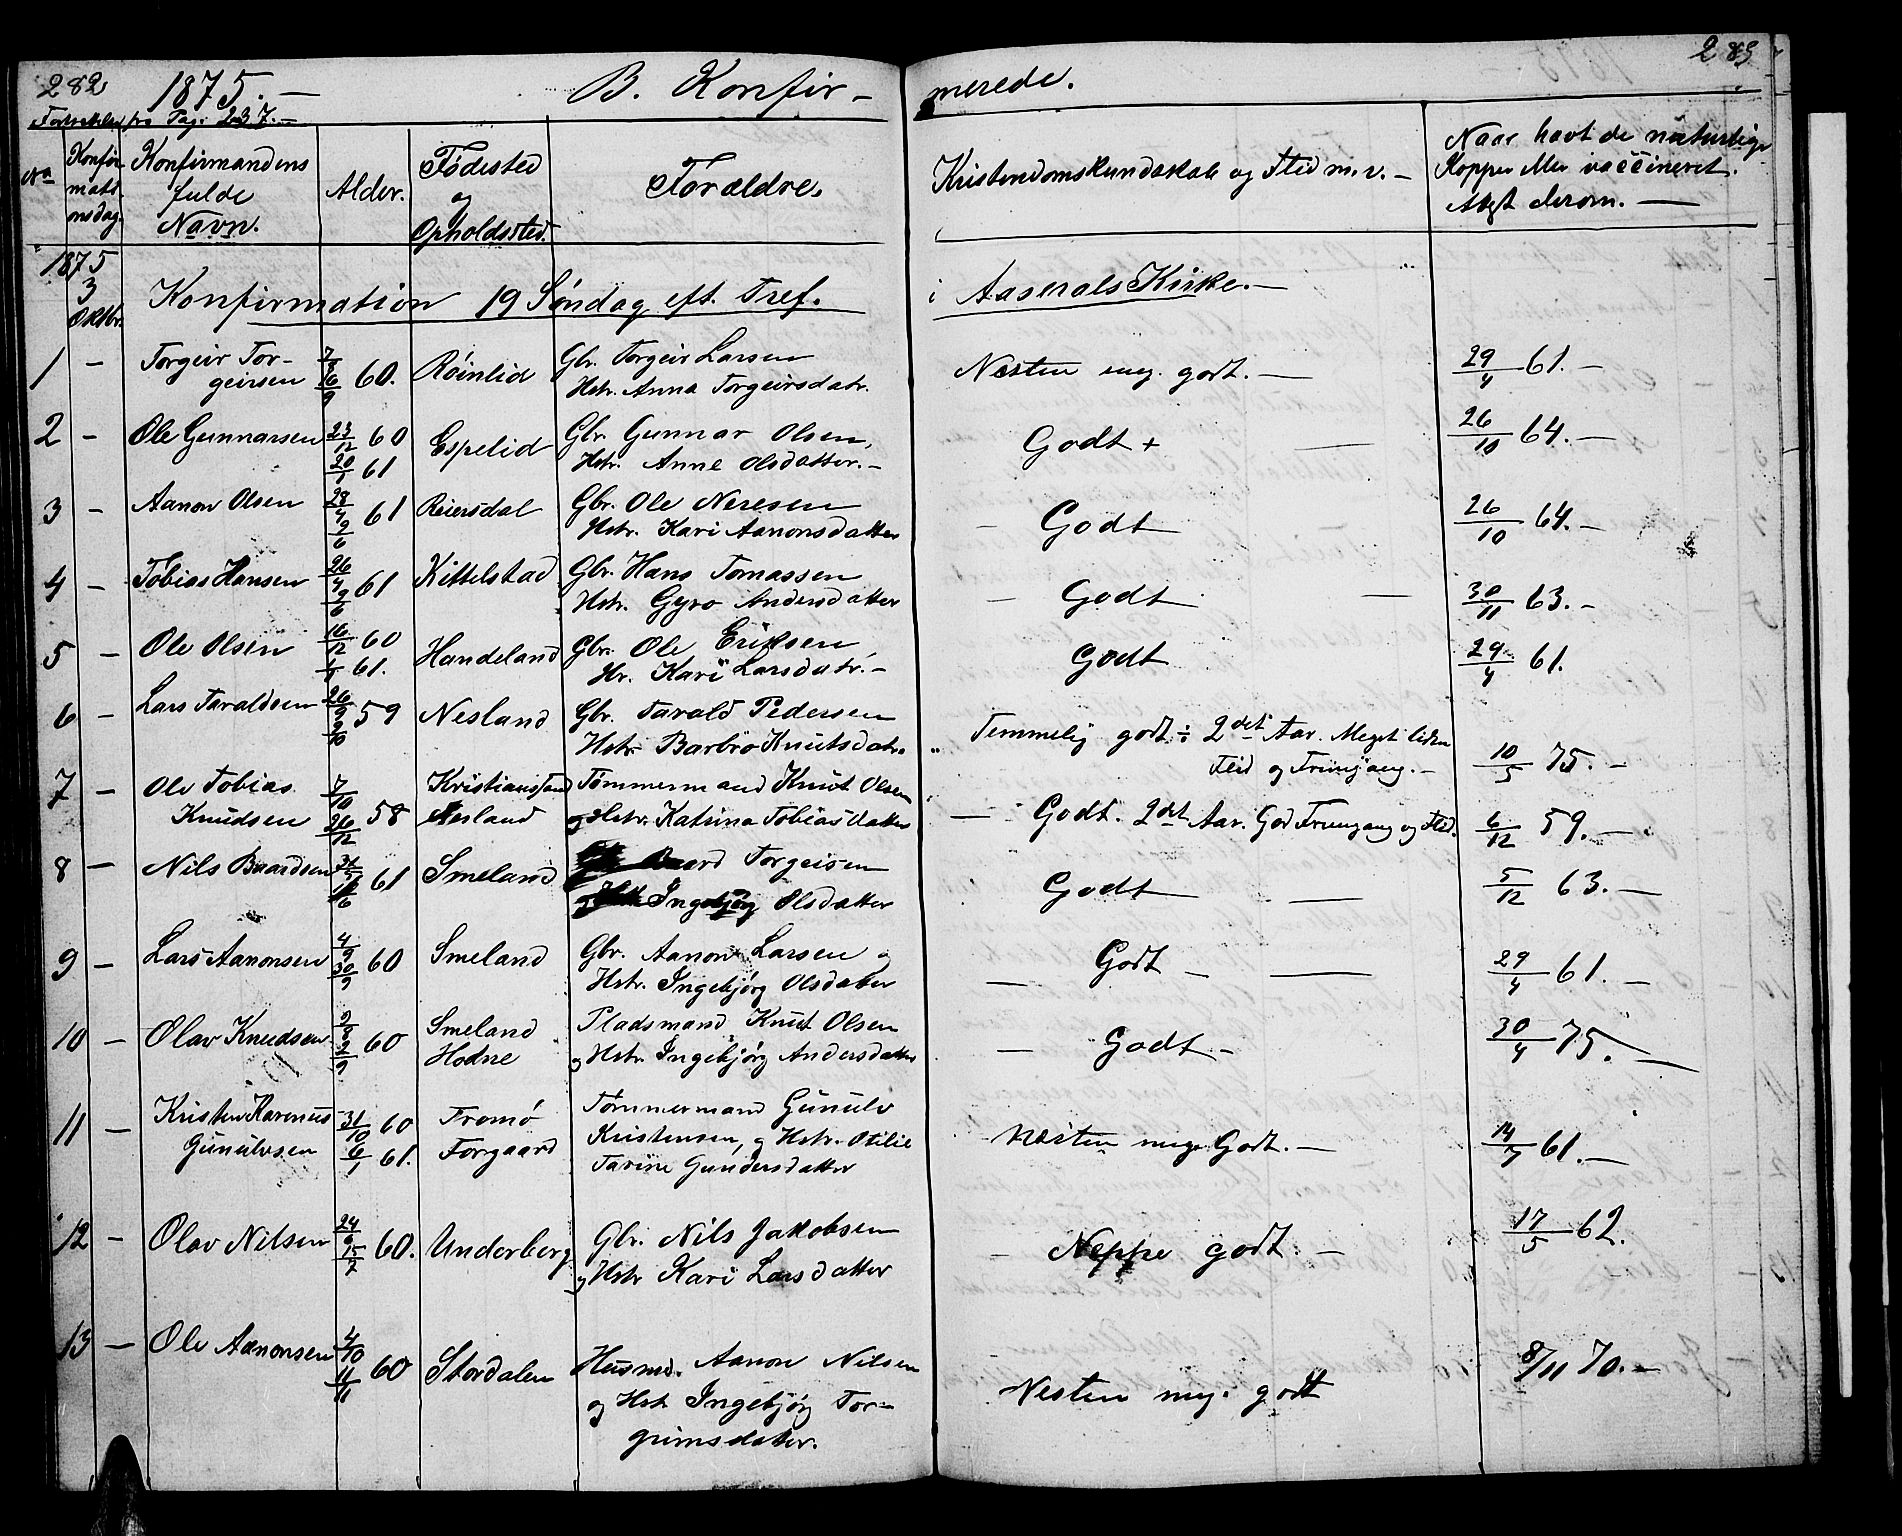 282 1875. — B. Konfir- merede. 283
Fortsættelse fra Pag: 237. —
No Konfirmationsdag. Konfirmandens fulde Navn. Alder. Fødested og Opholdssted. Forældre. Kristendomskundskab og Flid m. v. — Naar havt de naturlige Kopper eller vaccineret. Attest derom. —
1875
3 Oktbr. Konfirmation 19 Søndag eft. Tref. i Aaserals Kirke. —
1 — Torgeir Tor- 7/8 Røinlid Gbr. Torgeir Larsen Nesten meg. godt. — 29/4 61. —
geirsen 16/9 60. Hstr. Anna Torgeirsdatr.
2 — Ole Gunnarsen 23/12 60 Espelid Gbr. Gunnar Olsen, Godt + — 26/10 64. —
61 Hstr. Anne Olsdatter. —
3 — Aanon Olsen 28/4 61 Reiersdal Gbr. Ole Neresen — Godt 26/10 64. —
9/6 Hstr. Kari Aanonsdatter
4 — Tobias Hansen 26/4 61 Kittelstad Gbr. Hans Tomassen — Godt — 30/11 63. —
9/6 Hstr. Gyro Andersdatter
5 — Ole Olsen 16/12 60 Handeland Gbr. Ole Eriksen Godt 29/4 61.
61. Hr. Kari Larsdatr. —
6 — Lars Taraldsen 26/9 59 Nesland Gbr. Tarald Pedersen Temmelig godt ÷ 2det Aar. Meget liden 10/5 75. —
9/10 Hstr. Barbro Knutsdatr. Flid og Fremgang. —
7 — Ole Tobias 7/10 Kristianssand Tømmermand Knut Olsen — Godt. 2det Aar. God Fremgang og Flid. 6/12 59. —
Knudsen 26/12 58 Nesland og Hstr. Katrina Tobiasdatter
8 — Nils Baardsen 61 Smeland Baard Torgeisen Godt — 5/12 63. —
og Ingebjørg Olsdatter
9 — Lars Aanonsen 4/9 60 Smeland Gbr. Aanon Larsen og — Godt — — 29/4 61. —
30/9 Hstr. Ingebjørg Olsdatter
10 — Olav Knudsen 60 Smeland Pladsmand Knut Olsen — Godt — 30/4 75. —
Hodne og Hstr. Ingebjørg Andersdatter
11 — Kristen Karenus 31/10 60 Tromø Tømmermand Gunulv Nesten meg. Godt. — 14/7 61. —
Gunulvsen 6/1 61. Forgaard Kristensen, og Hstr. Otilie
Tarine Gundersdatter
12 — Olav Nilsen 24/6 60. Underberg Gbr. Nils Jakobsen — Neppe godt. — 17/5 62.
15/7 og Hstr Kari Larsdatter
13 — Ole Aanonsen 4/10 60 Stordalen Husmd. Aanon Nilsen Nesten meg. godt 8/11 70. —
11/11 og Hstr Ingebjørg Tor-
grimsdatter.